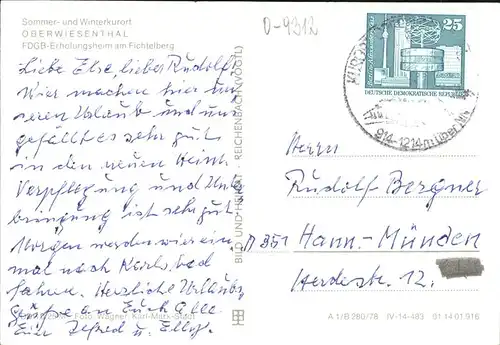 Sommer- und Winterkurort
OBERWIESENTHAL
FDGB-Erholungsheim am Fichtelberg
Liebe Else, lieber Rudolf!
Wir machen hier un-
seren Urlaub und uns
gefällt es sehr gut
in den neuen Heim
Verpflegung und Unter
bringung ist sehr gut
Morgen werden wir ein
mal nach Karlsbad
fahren. Herzliche Urlaubs
grüße an Euch Alle
Eure Alfred u. Elly.
Foto: Wagner, Karl-Marx-Stadt
BILD UND HEIMAT · REICHENBACH (VOGTL)
D-9312
25
DEUTSCHE DEMOKRATISCHE REPUBLIK
914-1214 m über NN
Herrn
Rudolf Bergner
D 351 Hann.-Münden
Herdestr. 12.
A 1/B 280/78 IV-14-483 01 14 01 916